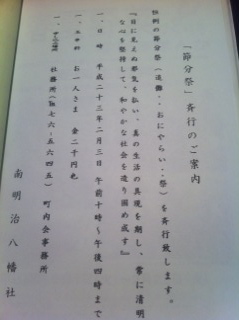 「節分祭」斎行のご案内
恒例の節分祭(追儺・・おにやらい・・祭)を斎行致します。
『目に見えぬ邪気を払い、真の生活の具現を期し、常に清明
な心を堅持して、和やかな社会を造り固め成す』
一、日時 平成二十三年二月三日 午前十時~午後四時まで
一、 お一人さま 金二千円也
一、 社務所(℡七六-五六四五) 町内会事務所
南明治八幡社